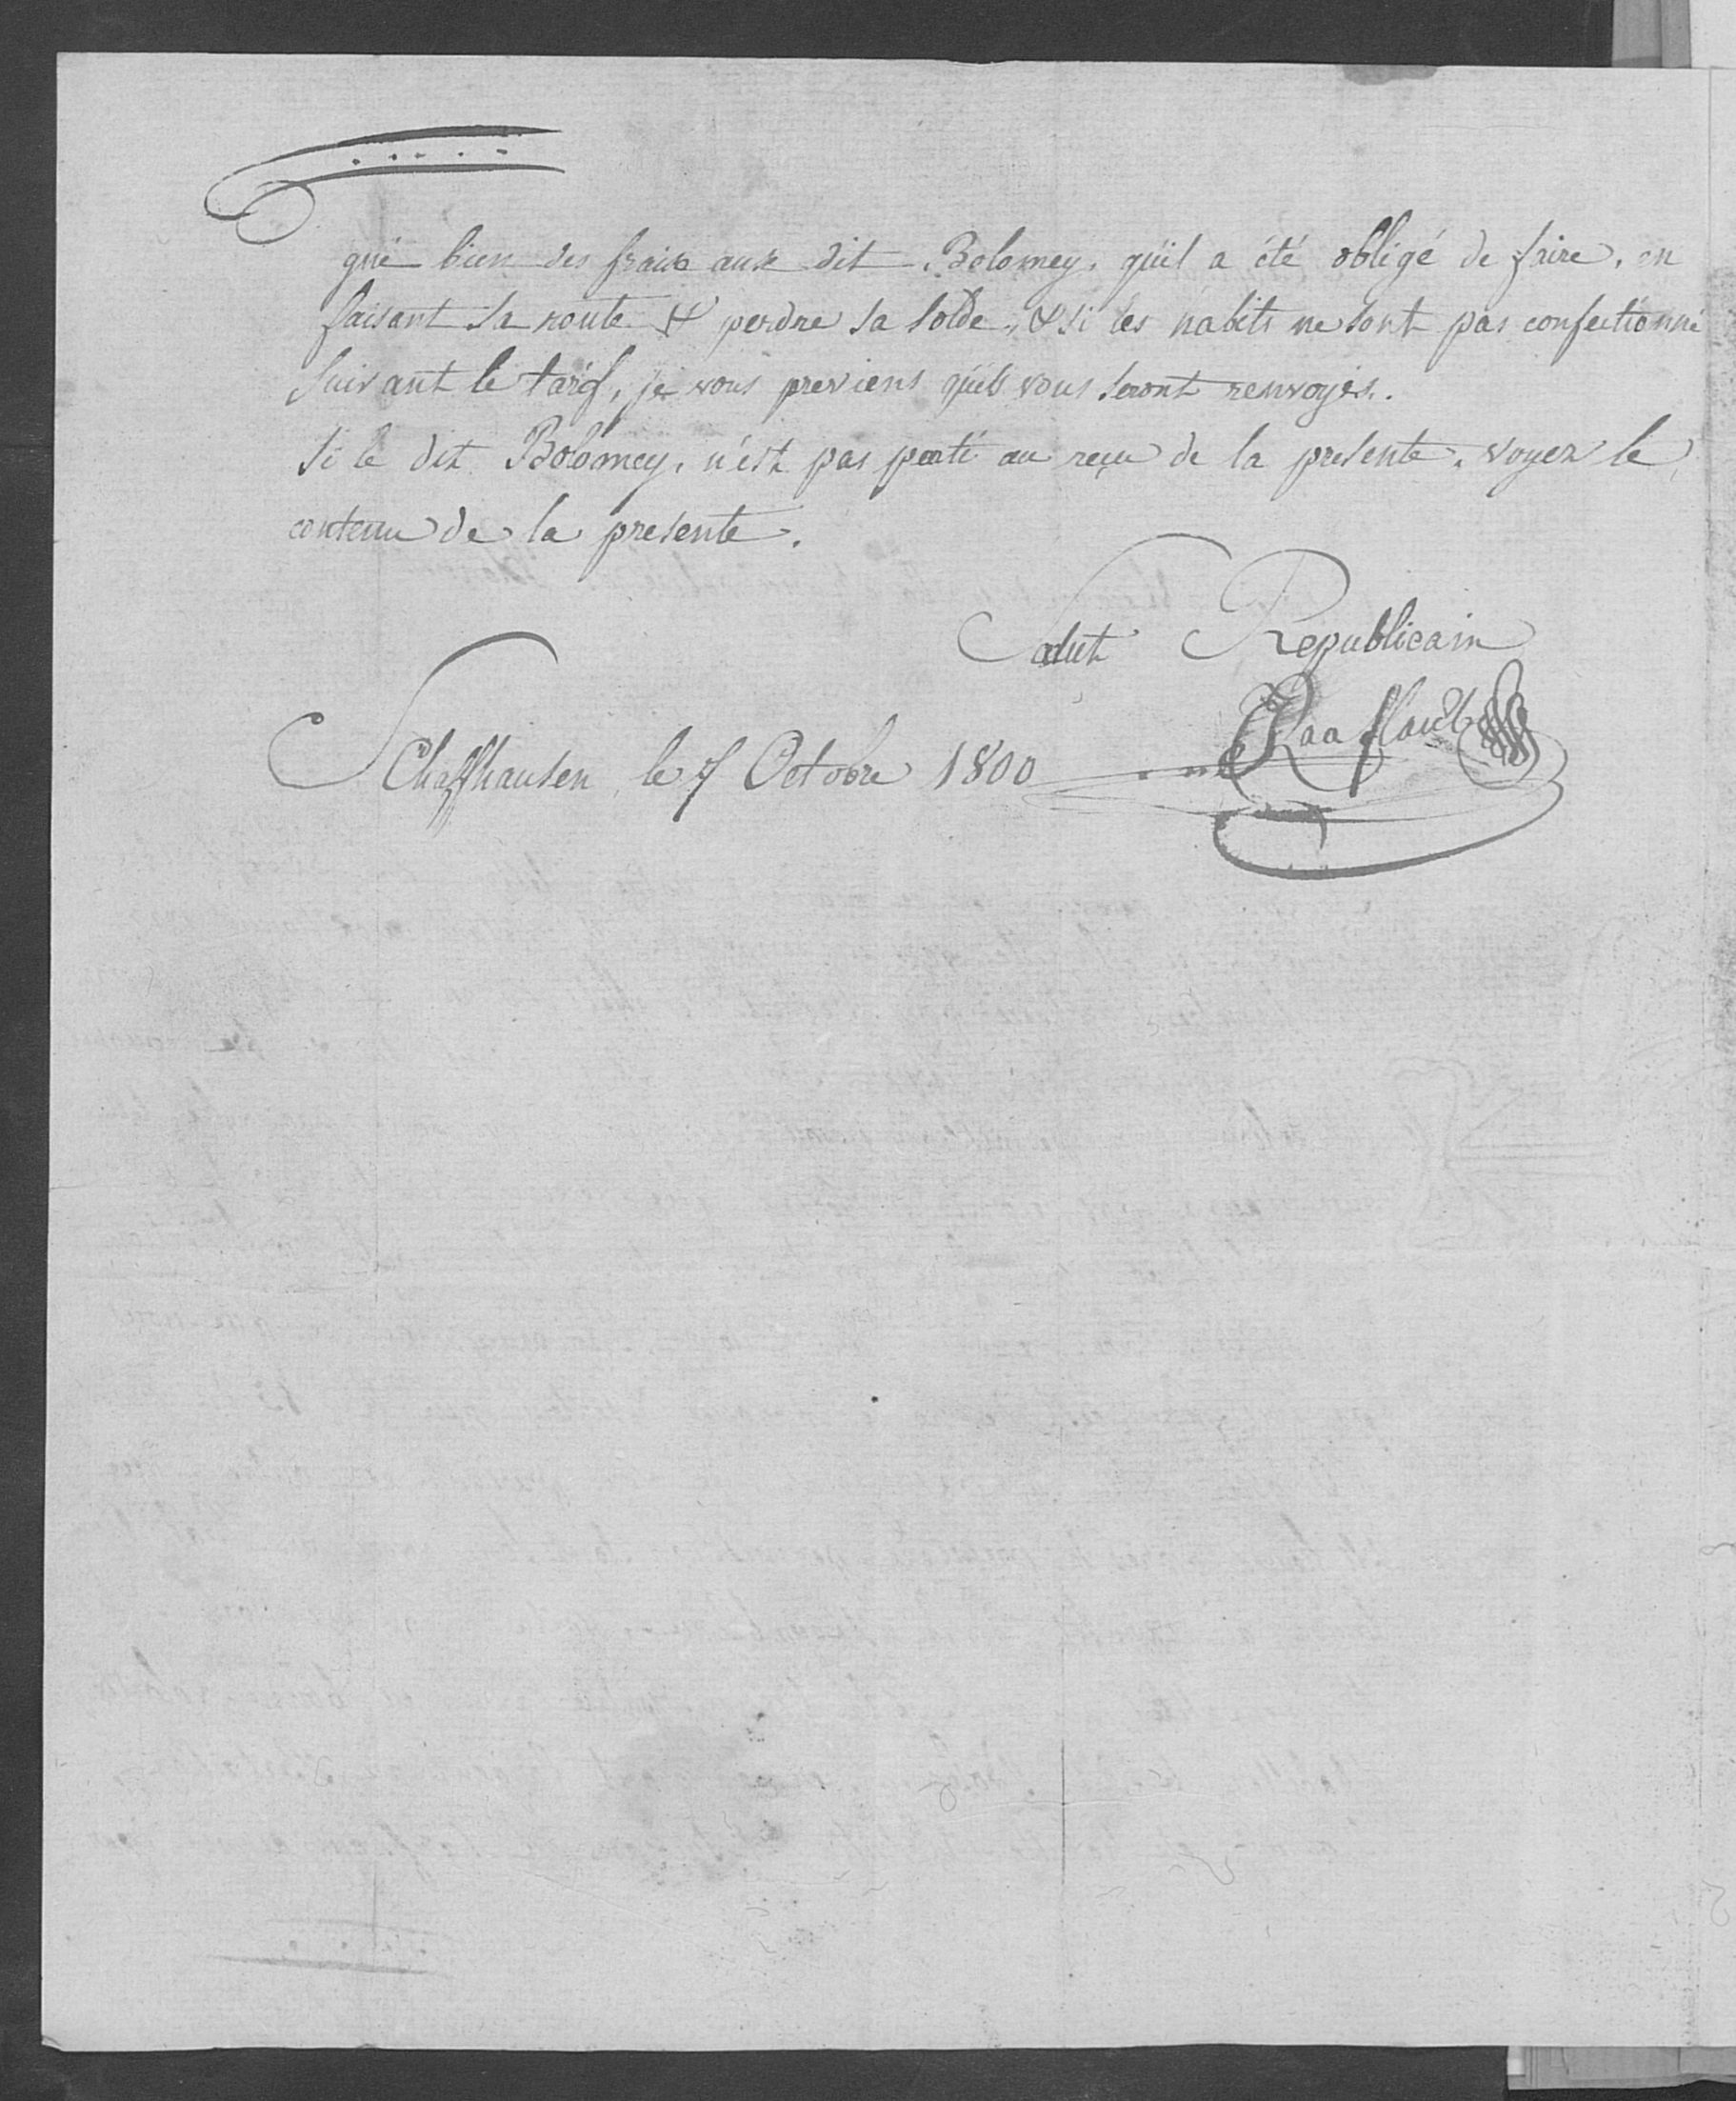 que bien des fraix aux dit Bolomey, qu'il a été obligé de faire, en
faisant sa route & perdre sa solde, & si les habits ne sont pas confectionné
suivant le tarif, je vous previens qu'ils vous seront renvoyés.
Si le dit Bolomey, n'est pas parti au reçu de la presente, voyez le
contenu de la presente.
Salut Republicain
Raaflaub
Schaffhausen, le 7 Octobre 1800